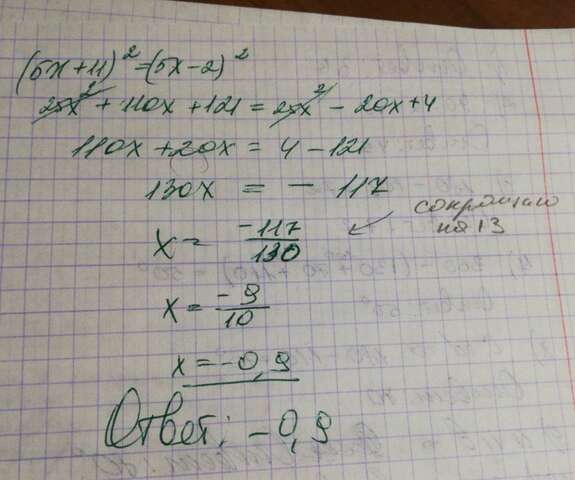 (5x+11)²=(5x-2)²
25x² + 110x + 121 = 25x² - 20x+4
110x + 20x = 4 - 121
130x = - 117
x = -117/130
сокращаю
на 13
x = -9/10
x = -0,9
Ответ: -0,9